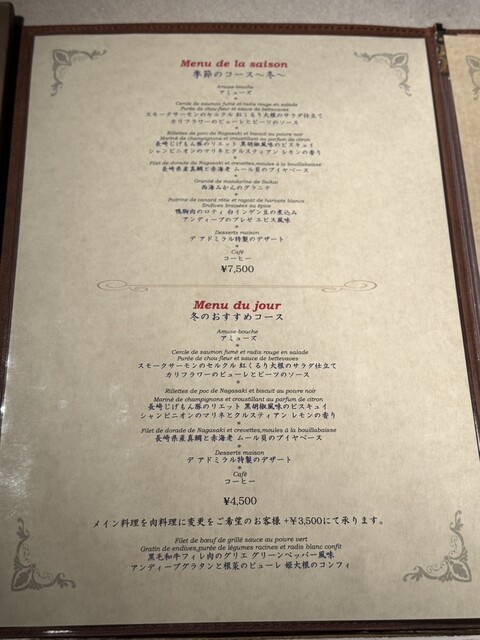 Menu de la saison
季節のコース～冬～
Amuse-bouche
アミューズ
*
Cercle de saumon fumé et radis rouge en salade
Purée de chou fleur et sauce de bettevaves
スモークサーモンのセルクル 紅くるり大根のサラダ仕立て
カリフラワーのピューレとビーツのソース
*
Rillettes de porc de Nagasaki et biscuit au poivre noir
Mariné de champignons et croustillant au parfum de citron
長崎じげもん豚のリエット 黒胡椒風味のビスキュイ
シャンピニオンのマリネとクルスティアン レモンの香り
*
Filet de dorade de Nagasaki et crevettes,moules à la bouillabaisse
長崎県産真鯛と赤海老 ムール貝のブイヤベース
*
Granité de mandarine de Saikai
西海みかんのグラニテ
*
Poitrine de canard rôtie et ragoût de haricots blancs
Endives braisées au épice
鴨胸肉のロティ 白インゲン豆の煮込み
アンディーブのブレゼ エピス風味
*
Desserts maison
デ アドミラル特製のデザート
*
Café
コーヒー
¥7,500
Menu du jour
冬のおすすめコース
Amuse-bouche
アミューズ
*
Cercle de saumon fumé et radis rouge en salade
Purée de chou fleur et sauce de bettevaves
スモークサーモンのセルクル 紅くるり大根のサラダ仕立て
カリフラワーのピューレとビーツのソース
*
Rillettes de poc de Nagasaki et biscuit au poivre noir
Mariné de champignons et croustillant au parfum de citron
長崎じげもん豚のリエット 黒胡椒風味のビスキュイ
シャンピニオンのマリネとクルスティアン レモンの香り
*
Filet de dorade de Nagasaki et crevettes,moules à la bouillabaisse
長崎県産真鯛と赤海老 ムール貝のブイヤベース
*
Desserts maison
デ アドミラル特製のデザート
*
Café
コーヒー
¥4,500
メイン料理を肉料理に変更をご希望のお客様 +¥3,500にて承ります。
Filet de bœuf de grillé sauce au poivre vert
Gratin de endives,purée de légumes racines et radis blanc confit
黒毛和牛フィレ肉のグリエ グリーンペッパー風味
アンディーブグラタンと根菜のピューレ 姫大根のコンフィ